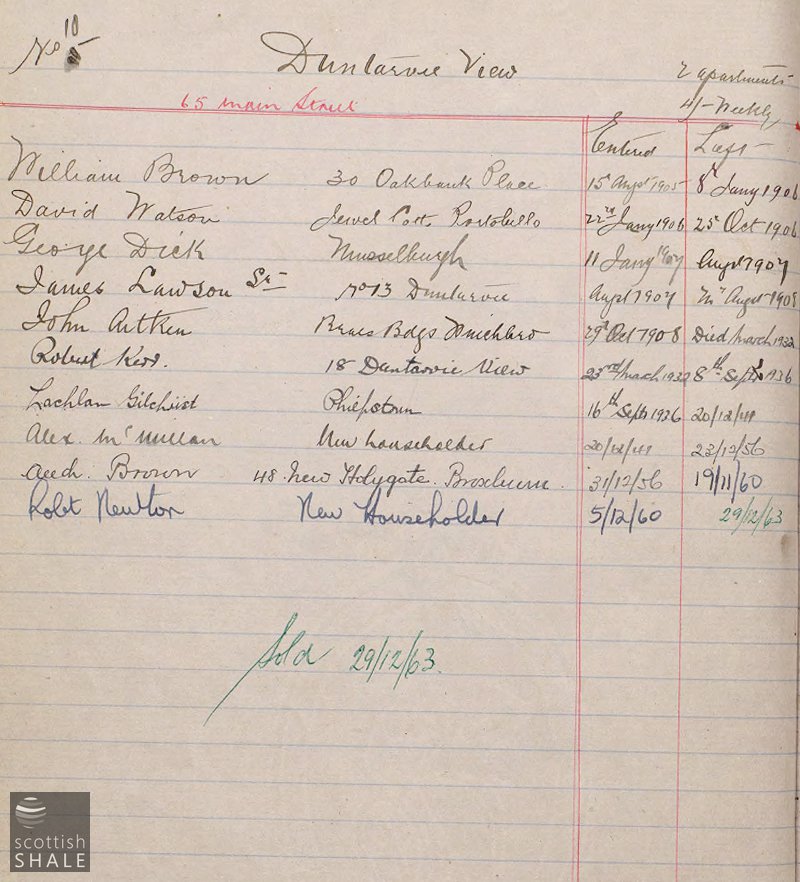 No 10
Duntarvie View
2 apartments
4/- Weekly
65 Main Street
Entered Left
William Brown 30 Oakbank Place 15 Augst 1905 8th Jany 1906
David Watson Jewel Cott. Portobello 22nd Jany 1906 25 Oct 1906
George Dick Musselburgh 11 Jany 1907 Augst 1907
James Lawson Sr No 13 Duntarvie Augst 1907 Augst 1908
John Aitken Braes Bdgs 29th Oct 1908 Died March 1932
Robert Kerr. 18 Duntarvie View 23rd March 1932 8th Septr 1936
Lachlan Gilchrist Philpstoun 16th Septr 1936 20/12/41
Alex. McMillan New householder 20/12/41 22/12/56
Arch. Brown 48 New Holygate. Broxburn. 31/12/56 19/11/60
Robt Newton New Householder 5/12/60 29/12/63
Sold 29/12/63.
scottish
SHALE